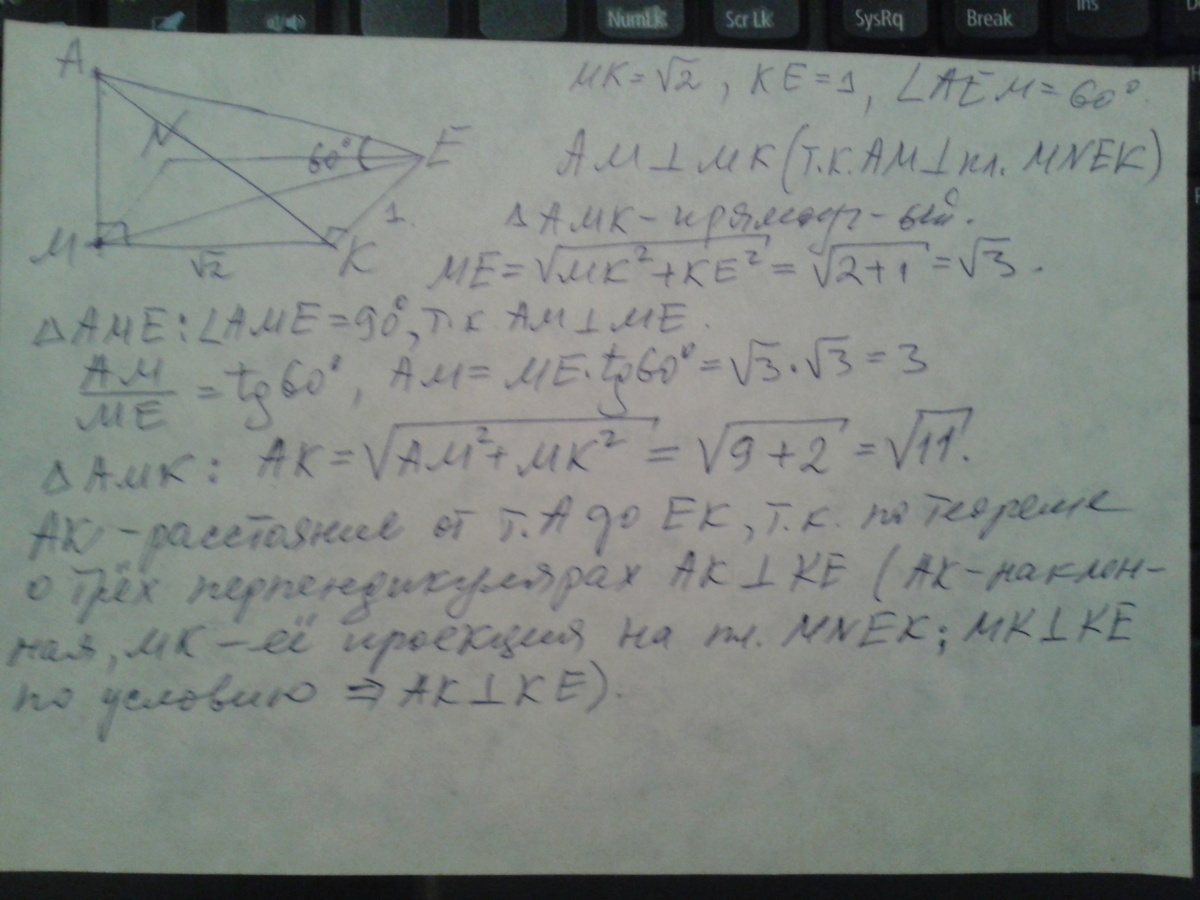 NumLk
Scr Lk
SysRq
Break
Ins
A
N
60°
E
M
√2
K
1
MK=√2, KE=1, ∠AEM=60°.
AM⊥MK (т.к. AM⊥пл. MNEK)
△AMK-прямоуг-ый.
ME=√MK²+KE²=√2+1=√3.
△AME: ∠AME=90°, т.к. AM⊥ME.
AM/ME = tg60°, AM=ME·tg60°=√3·√3=3
△AMK: AK=√AM²+MK²=√9+2=√11.
AK-расстояние от т.A до EK, т.к. по теореме
о трёх перпендикулярах AK⊥KE (AK-наклон-
ная, MK-её проекция на пл. MNEK; MK⊥KE
по условию ⇒ AK⊥KE).